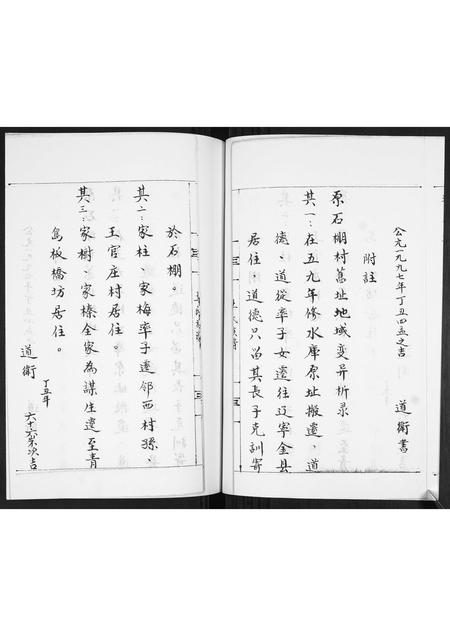 公元一九九七年丁丑四孟之吉
道衛書
附註
原石棚村舊址地域變异析录
其一：在五九年修水庫原址搬遷、道
德、道從率子女遷往辽宁金县
居住、道德只留其長子克訓寄
於石棚。
其二：家柱、家梅率子遷邻西村孫、
王官庄村居住。
其三：家樹、家榛全家為謀生遷至青
島板橋坊居住。
道衛
丁丑年
六十六